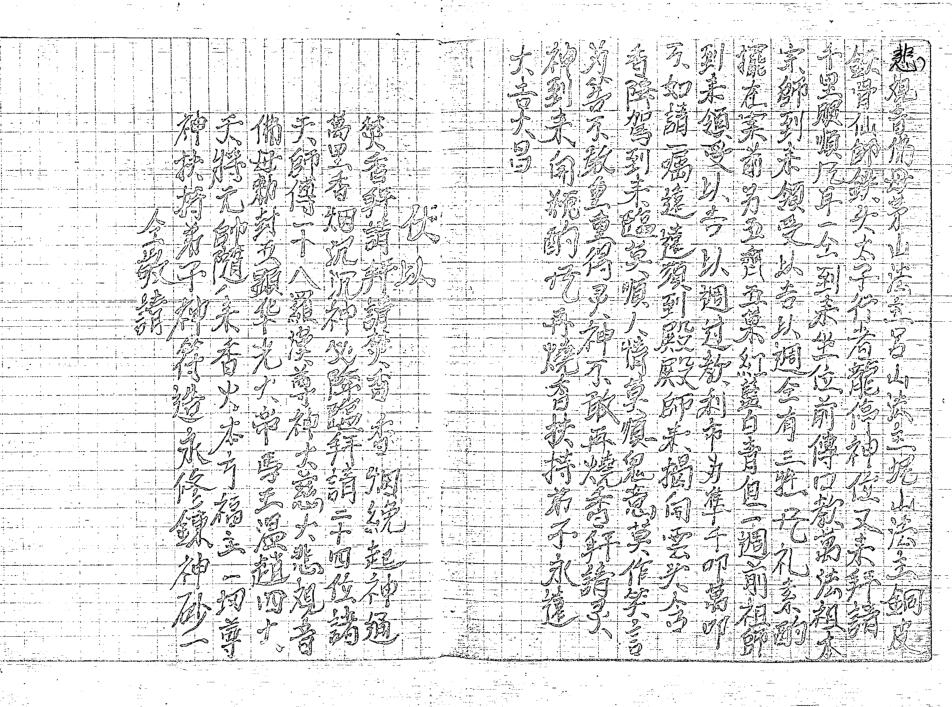 悲観音佛母茅山法主呂山法主堀山法主銅皮
鉄骨仙師鉄头太子行者龍停神位又来拜請
千里眼順風耳一仝到来坐位前傳口教萬法祖本
宗師到来領受以吉以週仝有三牲礼素酌
擺在案前另五齊五菓紅藍白青但一週前祖師
到来領受以吉以週过教利市另準千叩萬叩
又如請一摇遠遠須到殿殿師来揭開雲头今
香降駕到来臨莫順人情莫順鬼意莫作笑言
为答不敢重重得灵神不敢再燒香拜請灵
神到来開瓶酌 再燒香扶持弟不永遠
大吉大昌
伏以
焚香拜請拜請焚香香烟繞起神通
萬里香烟沉沉神必降臨拜請二十四位諸
天師傅一十八羅漢尊神大慈大悲观音
佛母勅封五顕华光大帝馬王温趙四大
天將元師隨来香火本方福主一切尊
神扶持弟子神符造永修鍊神砂二
仝敬請